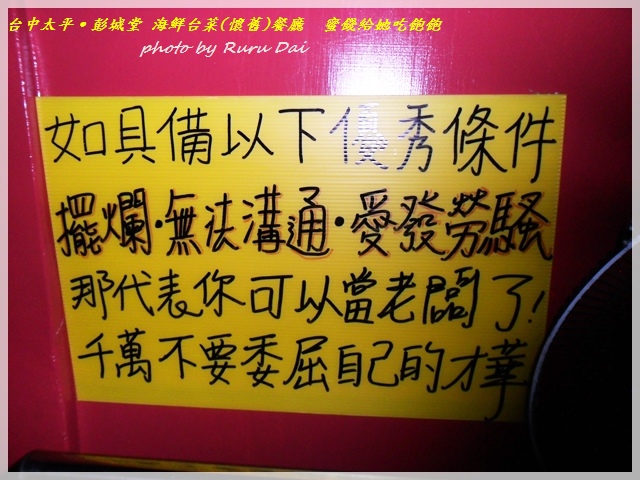 台中太平•彭城堂 海鮮台菜(懷舊)餐廳 蜜餞給她吃飽飽
photo by Ruru Dai
如具備以下優秀條件
擺爛·無法溝通·愛發勞騷
那代表你可以當老闆了!
千萬不要委屈自己的才華